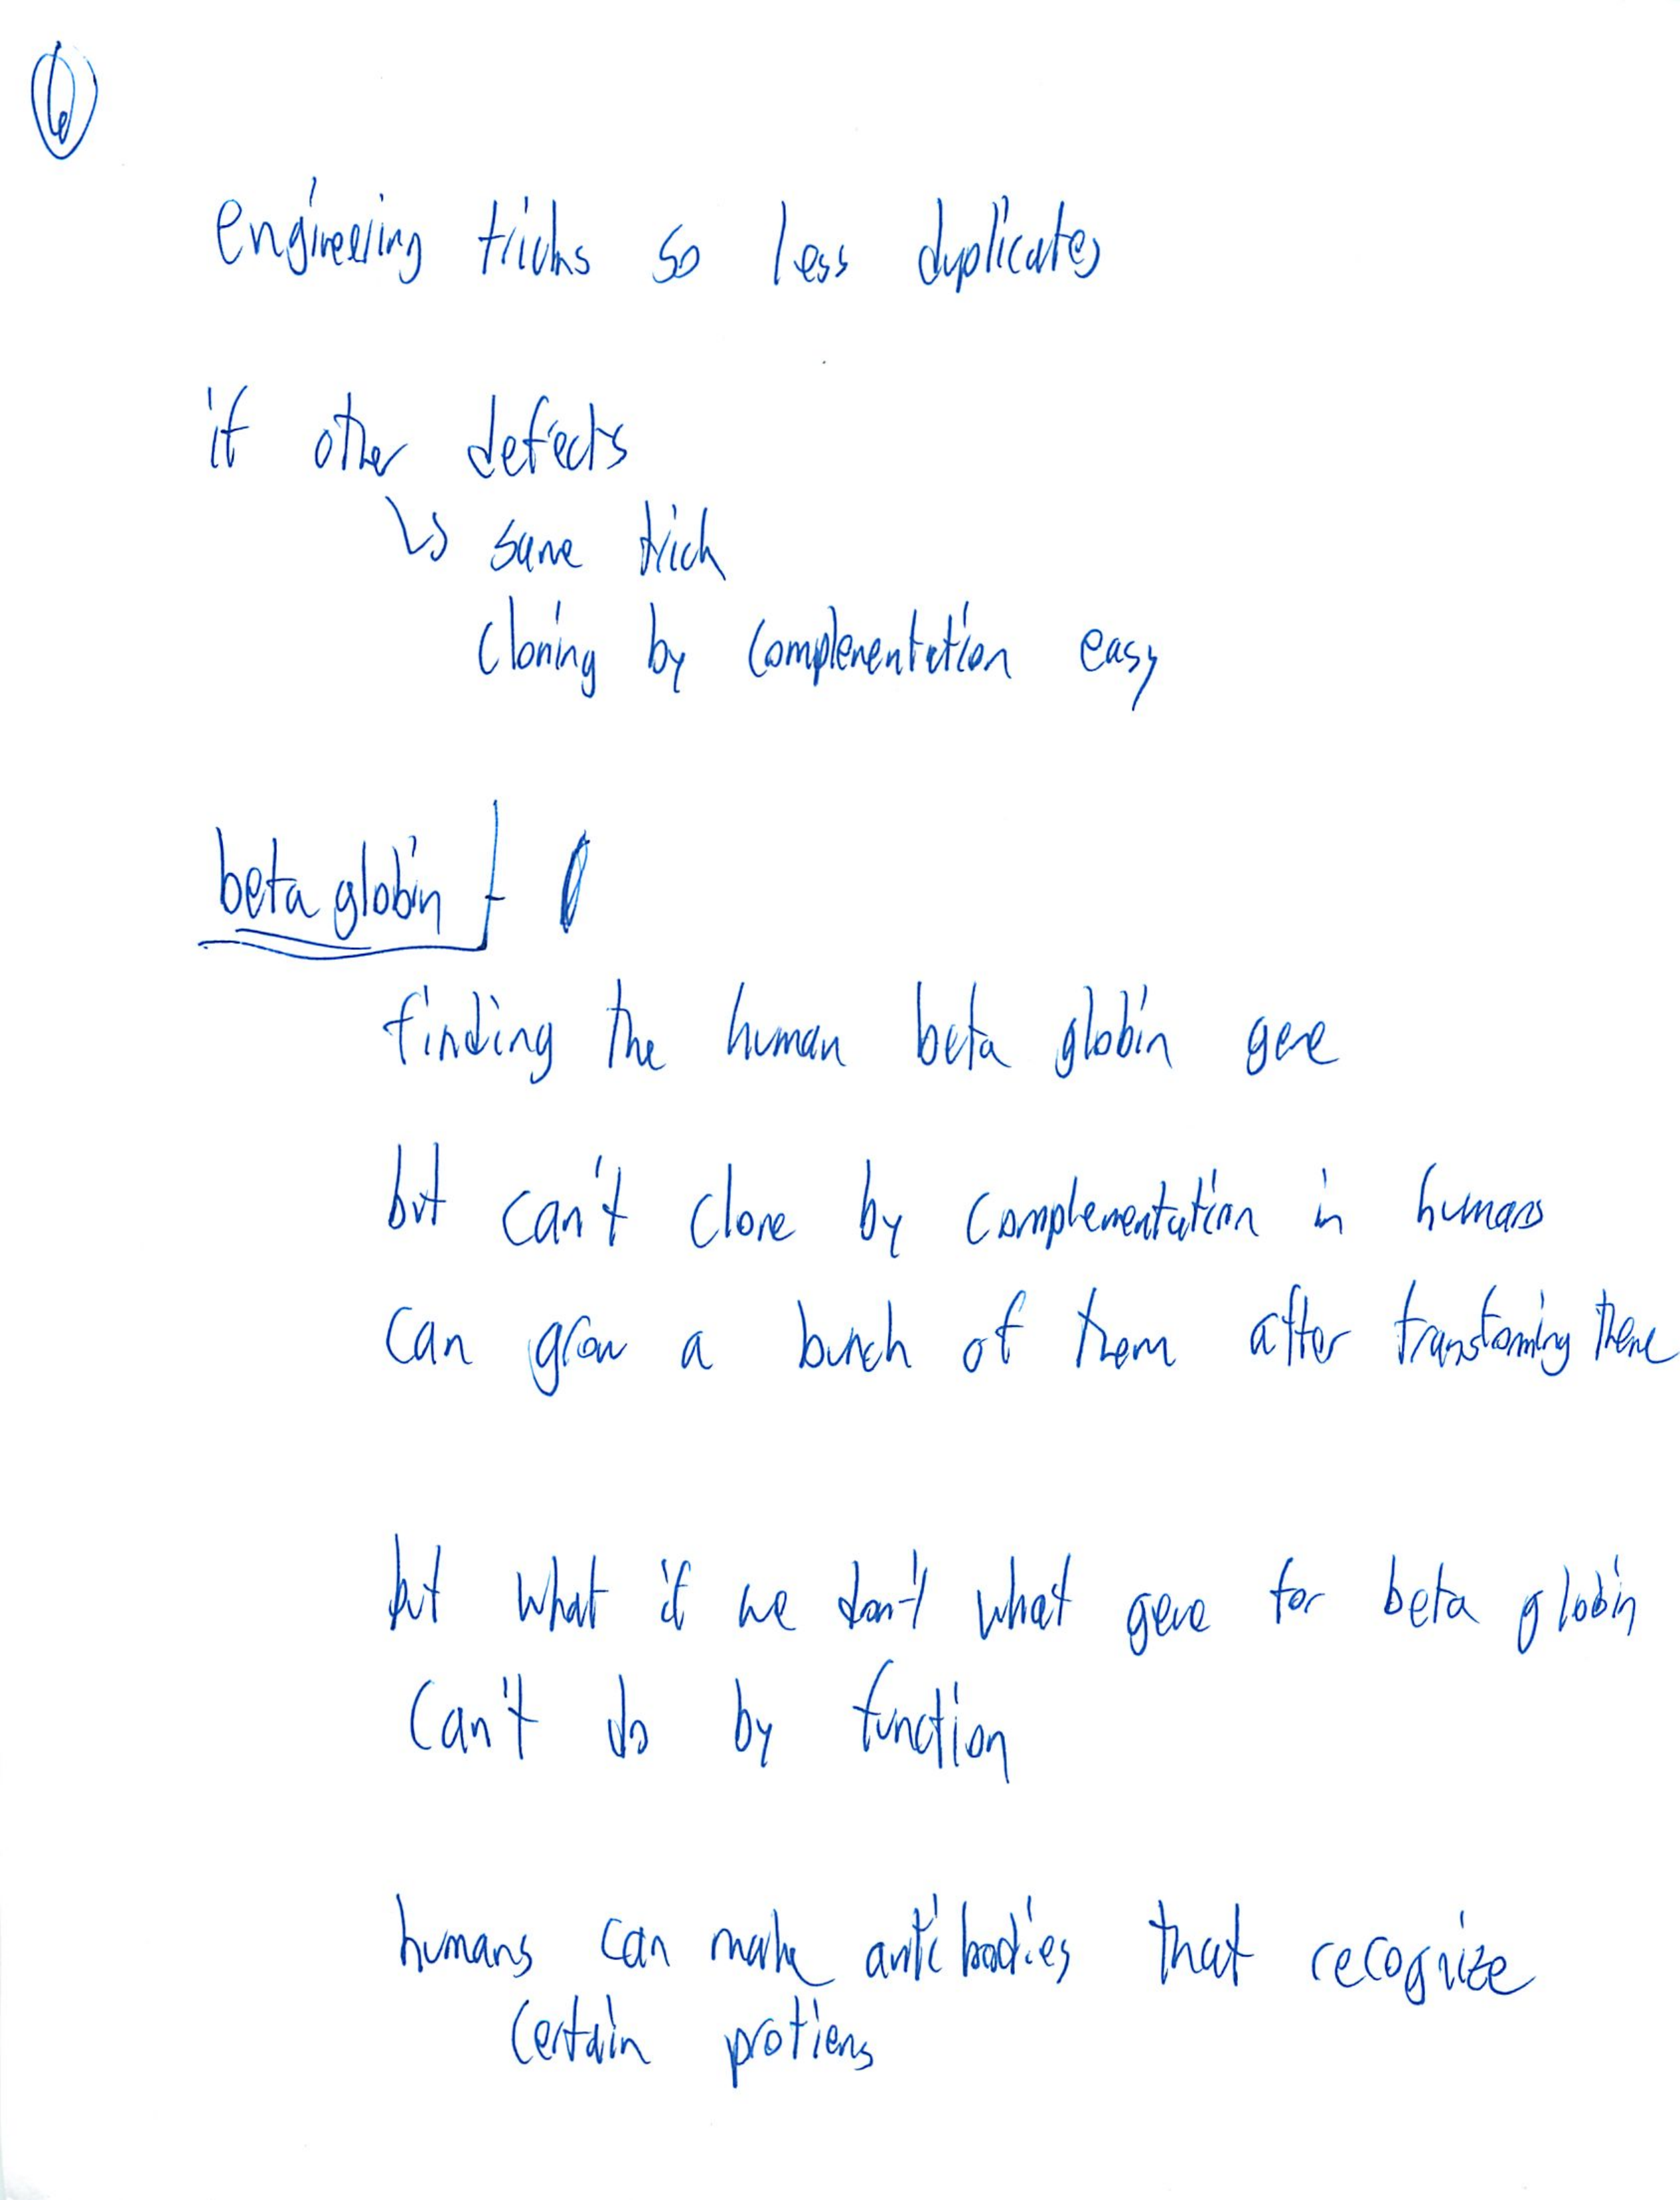 6
engineering tricks so less duplicates
if other defects
↳ same trick
cloning by complementation easy
beta globin -
finding the human beta globin gene
but can't clone by complementation in humans
can grow a bunch of them after transforming there
but what if we don't what gene for beta globin
can't do by function
humans can make antibodies that recognize
certain protiens